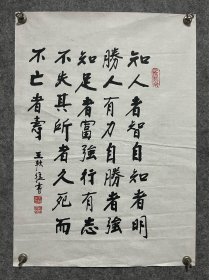 知人者智自知者明
勝人有力自勝者強
知足者富強行有志
不失其所者久死而
不亡者壽